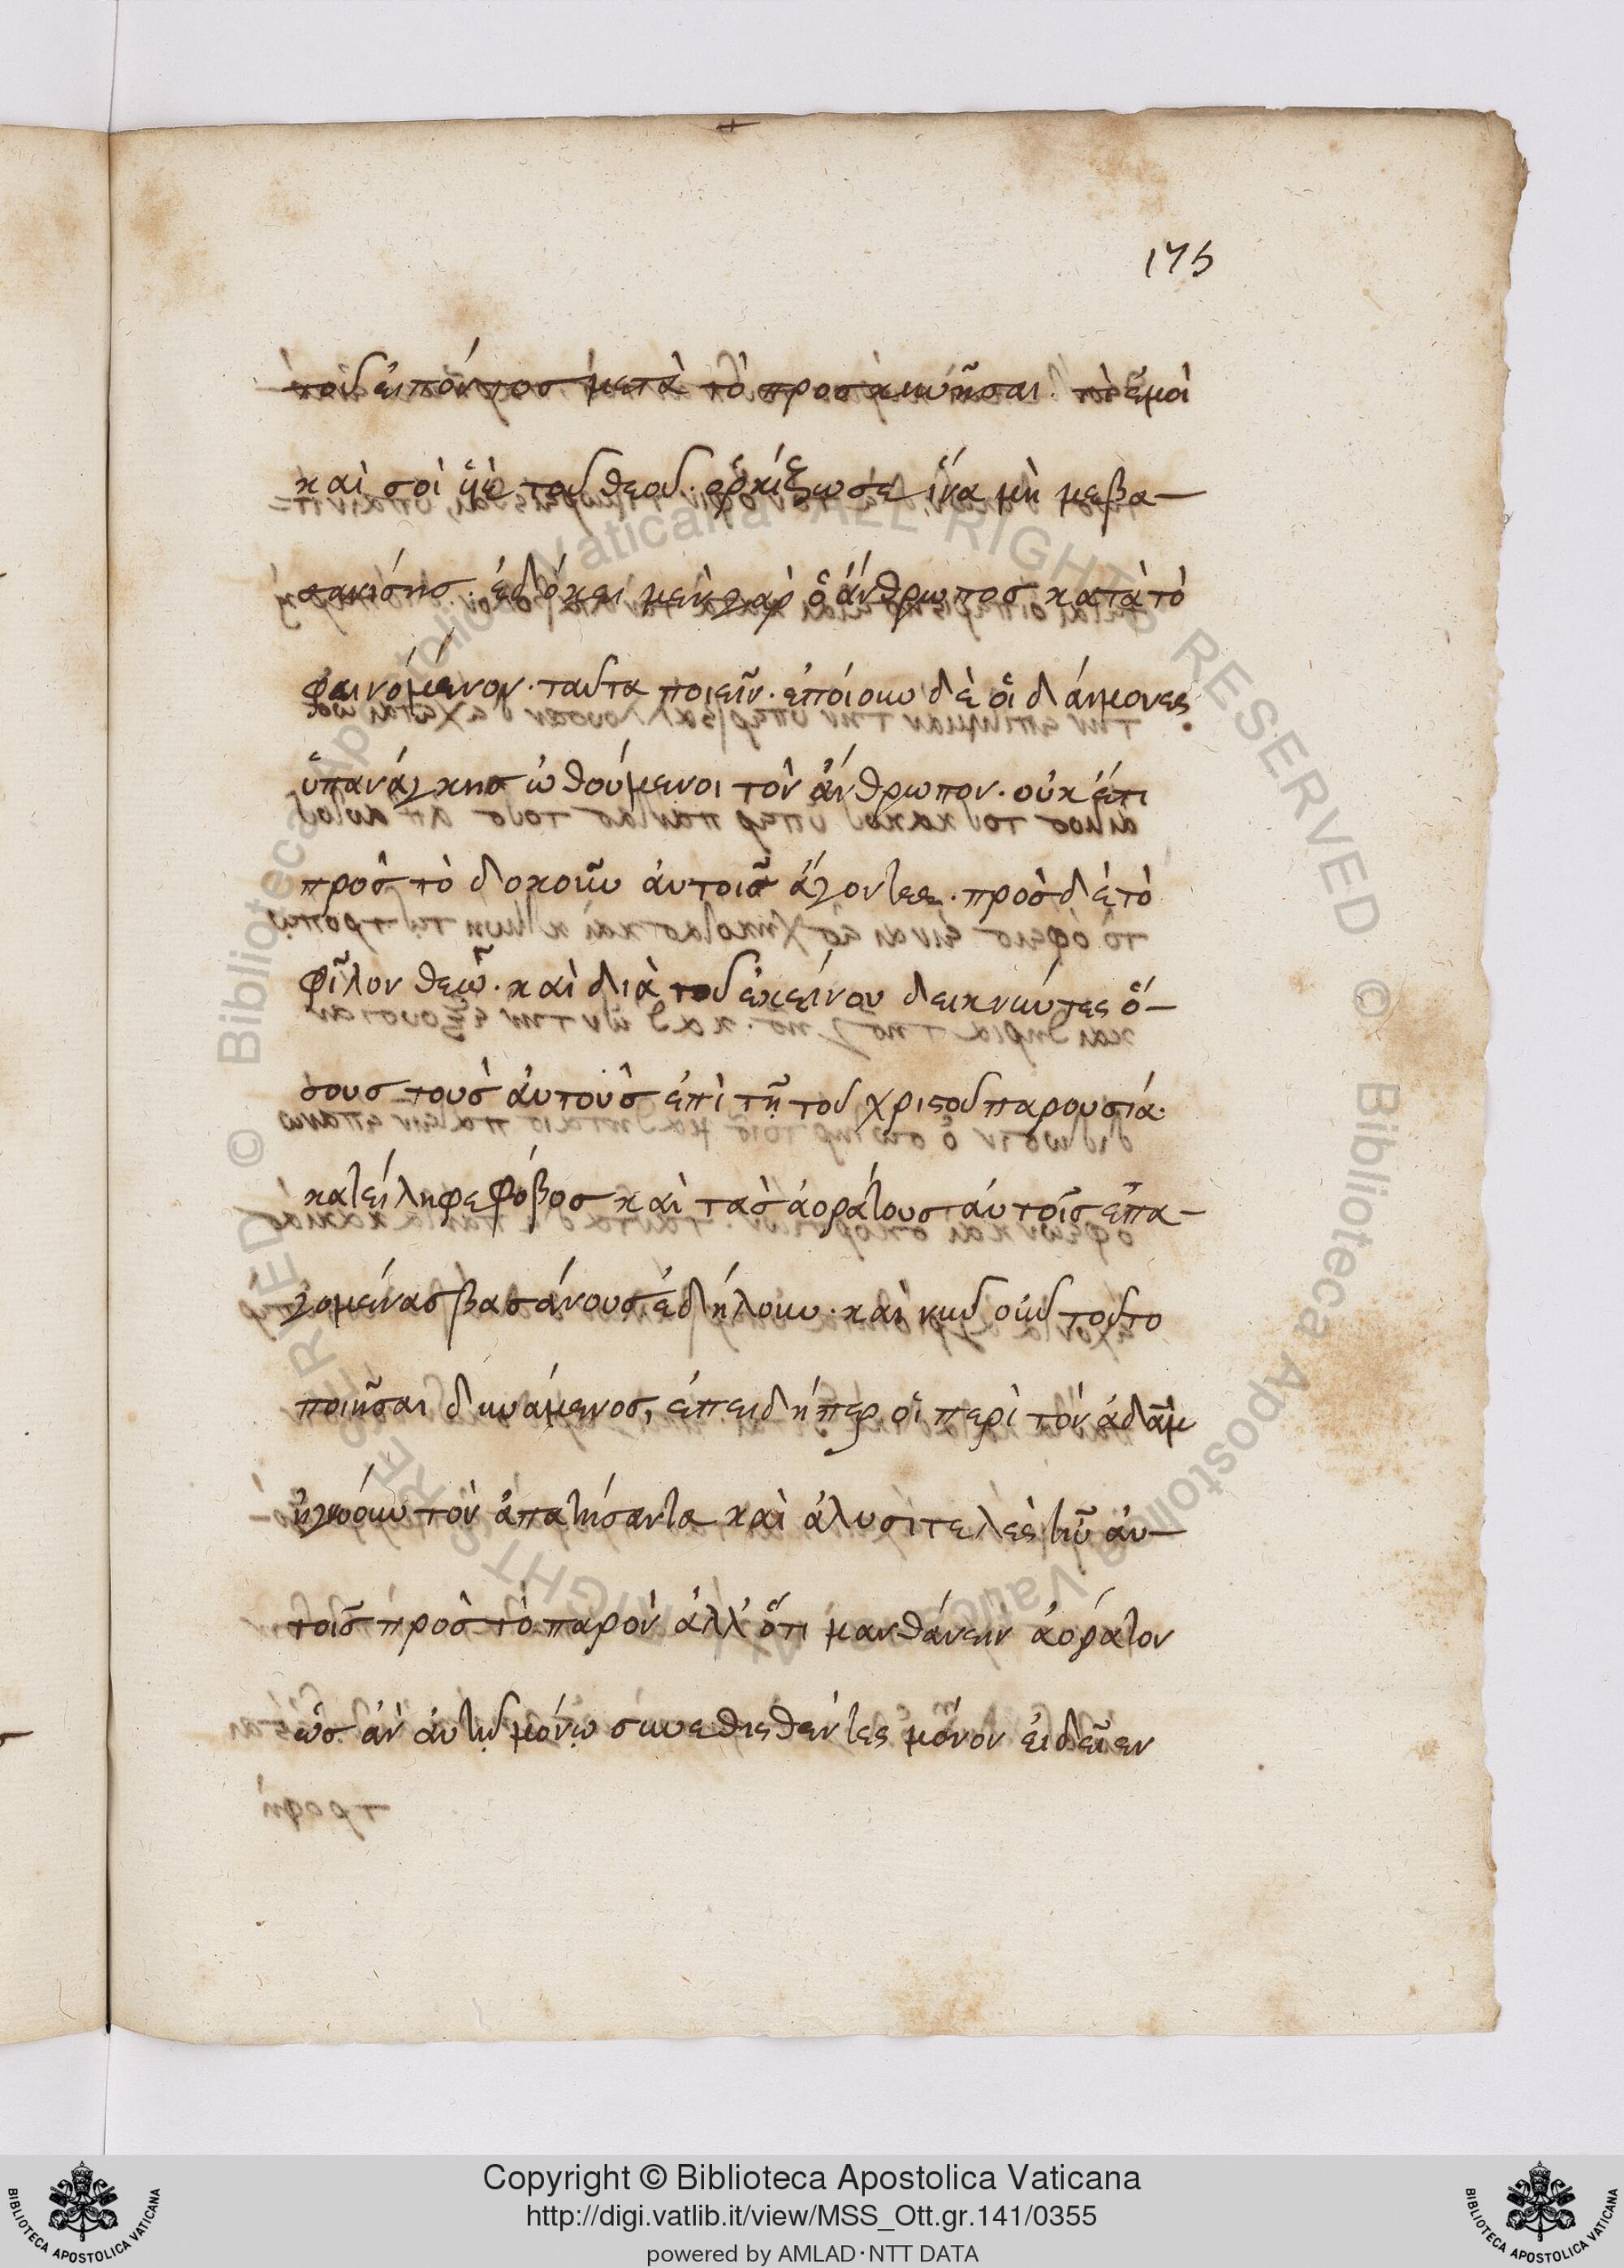 175
τοῦ εἰπόντος μετὰ τὸ προσκυνῆσαι. τὶ ἐμοὶ
καὶ σοὶ ὑὲ τοῦ θεοῦ. ὁρκίζω σε ἵνα μὴ μεβα-
σανίσης. ἐδόκει μὲν γὰρ ὁ ἄνθρωπος κατὰ τὸ
φαινόμενον. ταῦτα ποιεῖν. ἐποίουν δὲ οἱ δαίμονες
ὑπανάγκης ὠθούμενοι τὸν ἄνθρωπον. οὐκέτι
πρὸς τὸ δοκοῦν αὐτοῖς ἄγοντες. πρὸς δὲ τὸ
φίλον θεῶ. καὶ διὰ τοῦ ἐκείνου δεικνύντες ὅ-
σους τοὺς αὐτοὺς ἐπὶ τῇ τοῦ χριστοῦ παρουσία.
κατείληφε φόβος καὶ τὰς ἀοράτους αὐτοῖς ἐπα-
γομένας βασάνους ἐδήλουν. καὶ νῦν οὖν τοῦτο
ποιῆσαι δυνάμενος, ἐπειδήπερ οἱ περὶ τὸν ἀδὰμ
ἠγνόουν τὸν ἀπατήσαντα καὶ ἀλυσιτελὲς ἦν αὐ-
τοῖς πρὸς τὸ παρὸν ἀλλ' ὅτι μανθάνειν ἀόρατον
ὡς ἂν αὐτῷ μόνῳ συνεθισθέντες μόνον εἰδεῖεν
Copyright © Biblioteca Apostolica Vaticana
http://digi.vatlib.it/view/MSS_Ott.gr.141/0355
powered by AMLAD·NTT DATA